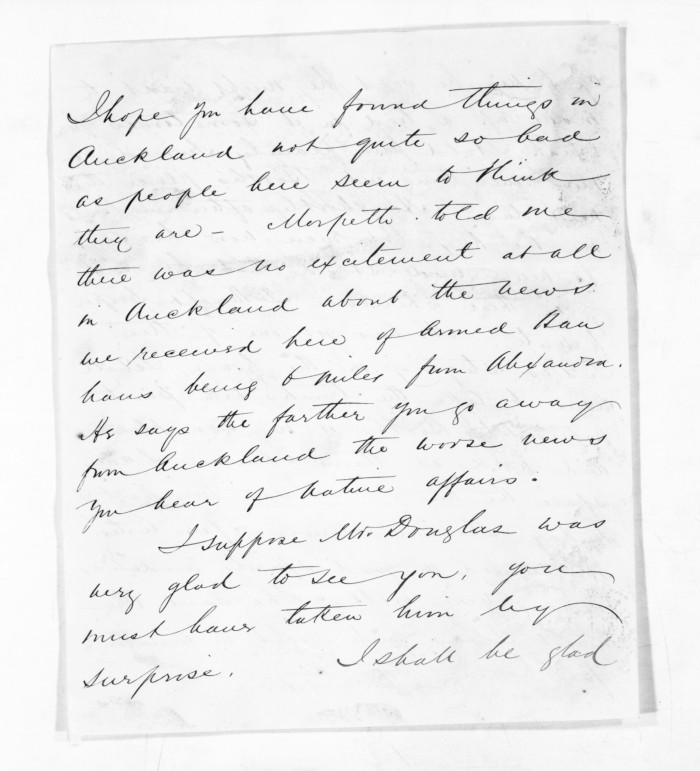 I hope you have found things in
Auckland not quite so bad
as people here seem to think
they are - Morpeth told me
there was no excitement at all
in Auckland about the news
we received here of Armed Hau
haus being 6 miles from Alexandra.
He says the farther you go away
from Auckland the worse news
you hear of native affairs.
I suppose Mr. Douglas was
very glad to see you, you
must have taken him by
surprise. I shall be glad